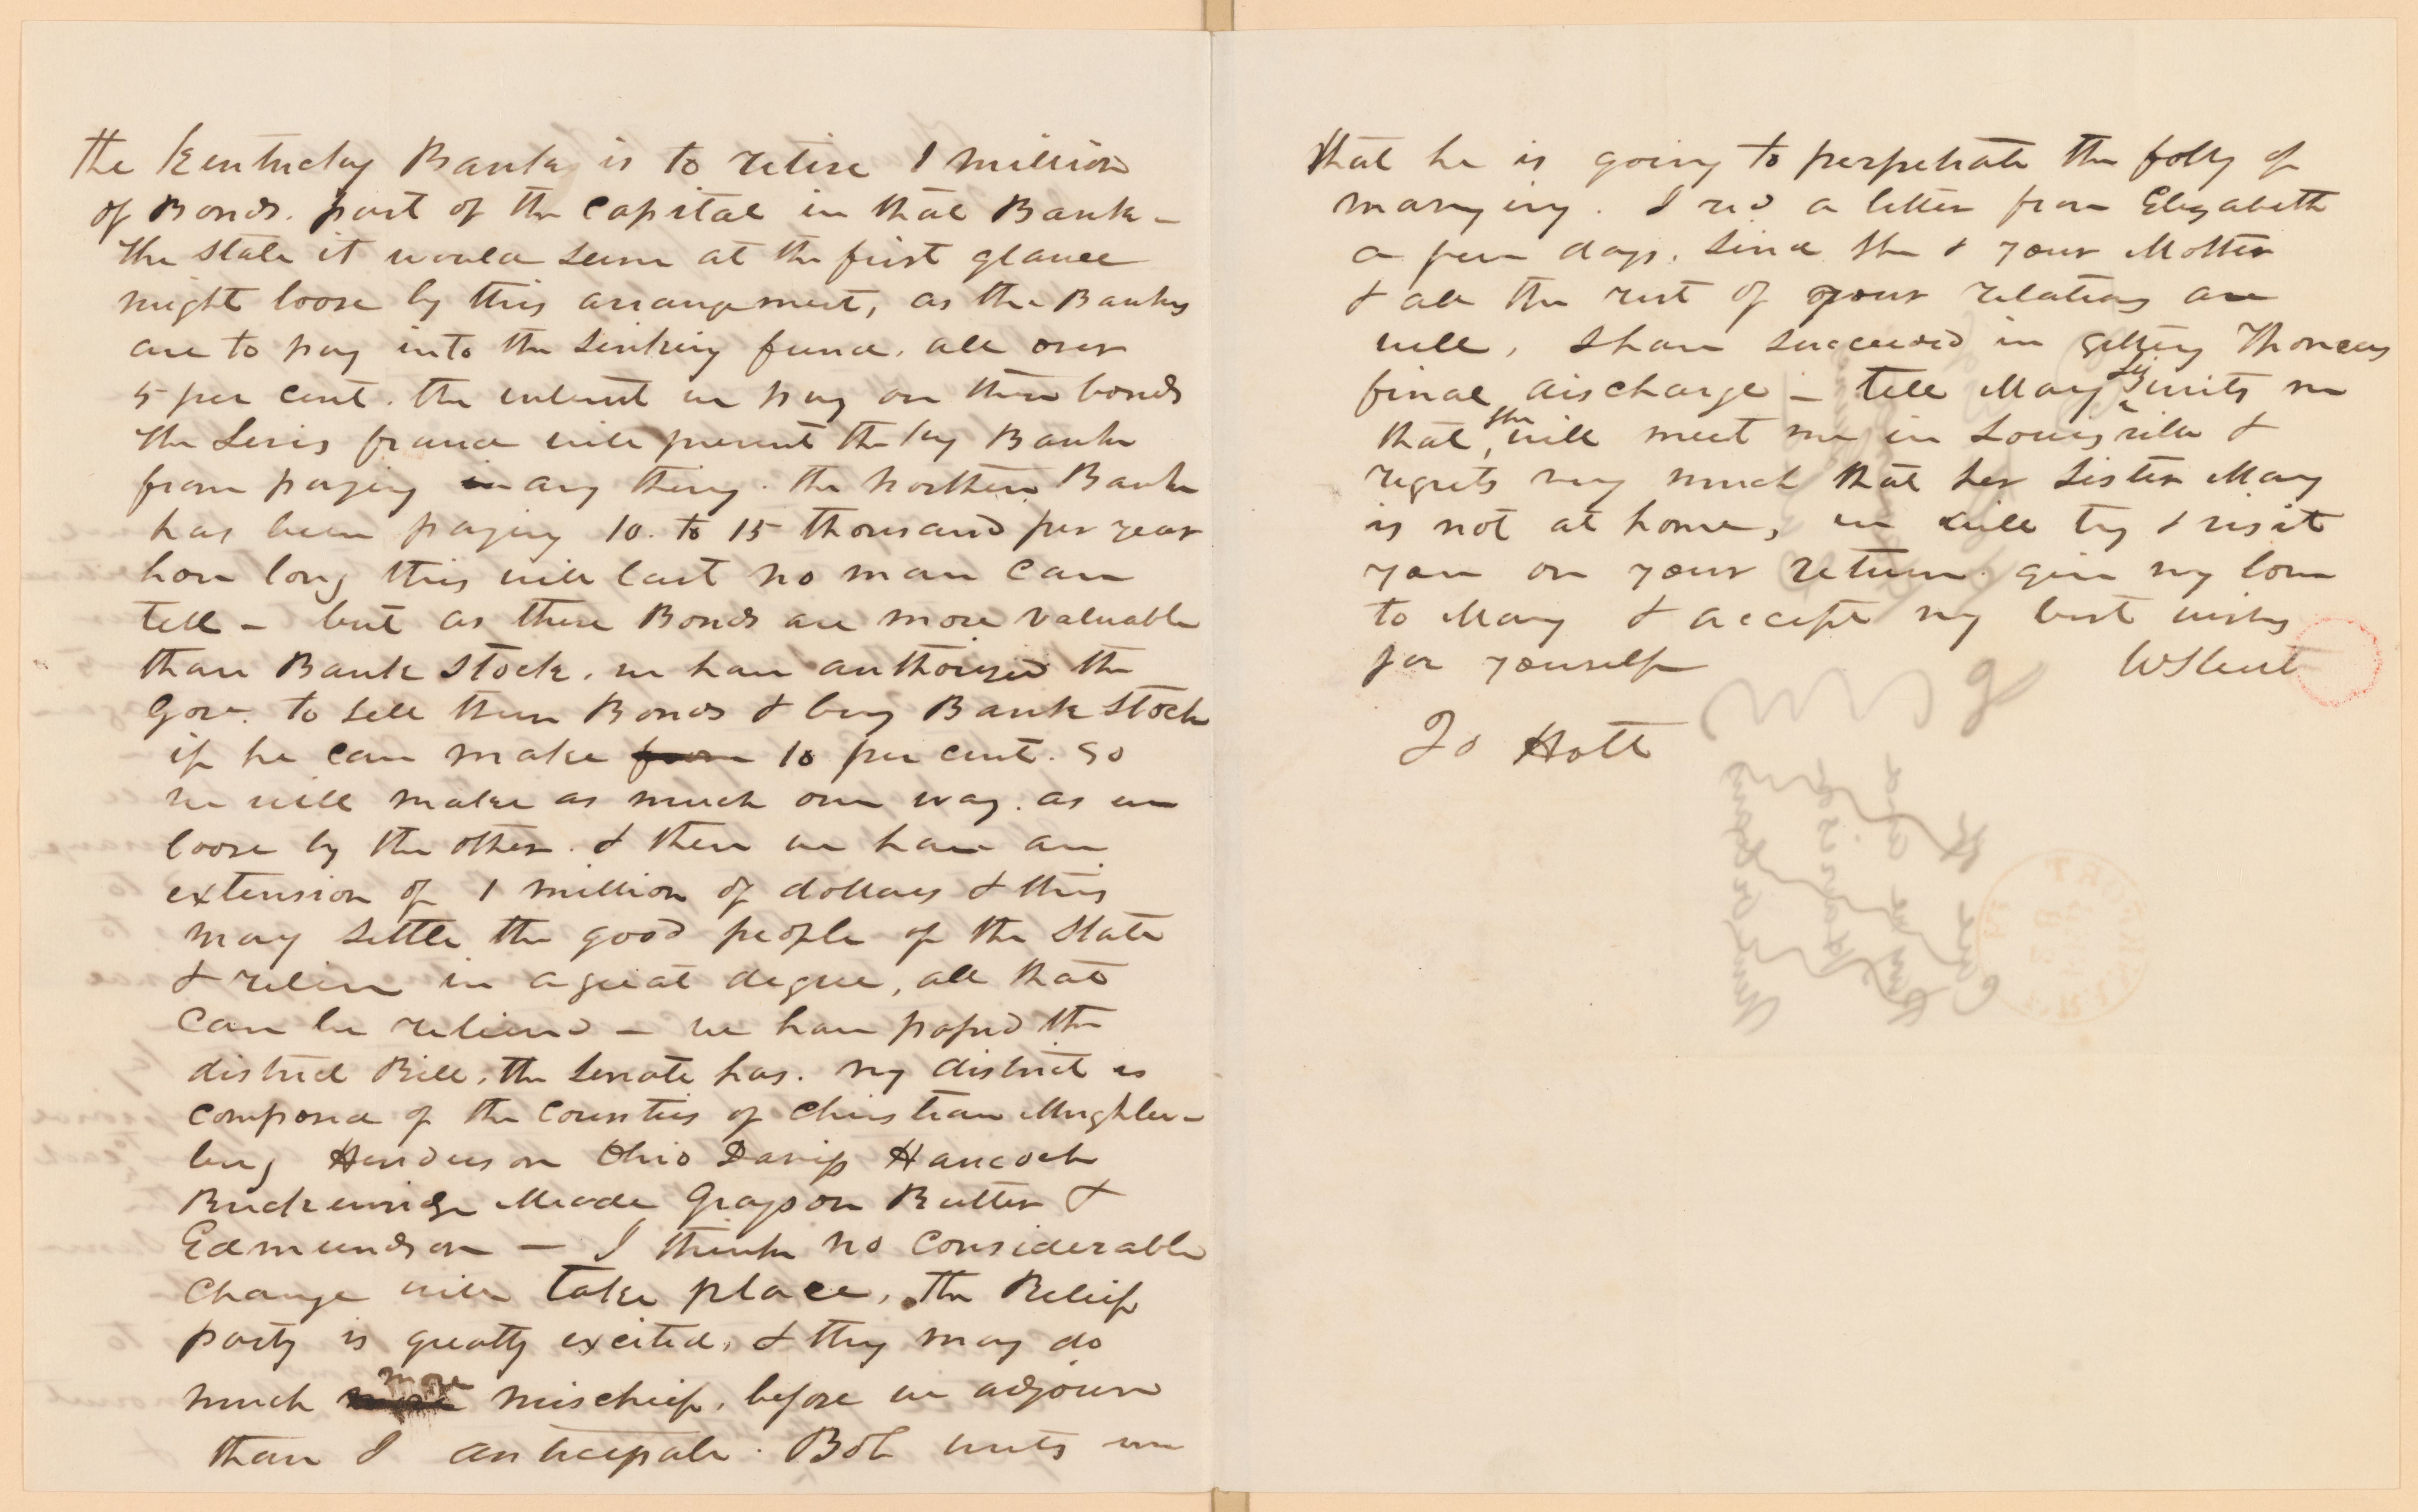 the Kentucky Banks is to retire 1 million
of Bonds. part of the capital in that Bank -
the State it would seem at the first glance
might loose by this arrangement, as the Banks
are to pay into the sinking fund. all over
5 per cent. the interest we pay on these bonds
the Levis fraud will prevent the Ky Bank
from paying in any thing. the Northern Bank
has been paying 10. to 15 thousand per year
how long this will last no man can
tell - but as these Bonds are more valuable
than Bank Stock. we have authorised the
Gov. to sell them Bonds & buy Bank Stock
if he can make from 10 per cent. so
we will make as much one way. as we
loose by the other. & then we have an
extension of 1 million of dollars & this
may settle the good people of the State
& relieve in a great degree, all that
can be relieved - we have passed the
district Bill, the Senate has. my district is
composed of the counties of Christian Mughlen-
burg Henderson Ohio Daviss Hancock
Breckenridge Meade Grayson Butler &
Edmundson - I think no considerable
change will take place. The Relief
party is greatly excited, & they may do
much more more mischief, before we adjourn
than I anticipate. Bob writes me
that he is going to perpetrate the folly of
marrying. I recd a letter from Elizabeth
a few days. since she & your Mother
& all the rest of your relations are
well, I have succeeded in getting Thomas
final discharge - tell Mary writes me
that she will meet me in Louisville &
regrets very much that her sister Mary
is not at home, we will try & visit
you on your return. give my love
to Mary & accept my best wishes
for yourself
To Holt